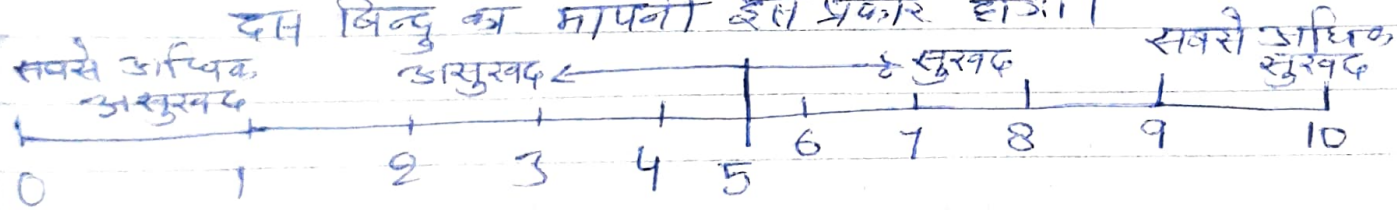 दस बिन्दु का मापनी इस प्रकार होगा।
सबसे अधिक असुखद असुखद सुखद सबसे अधिक सुखद
0 1 2 3 4 5 6 7 8 9 10